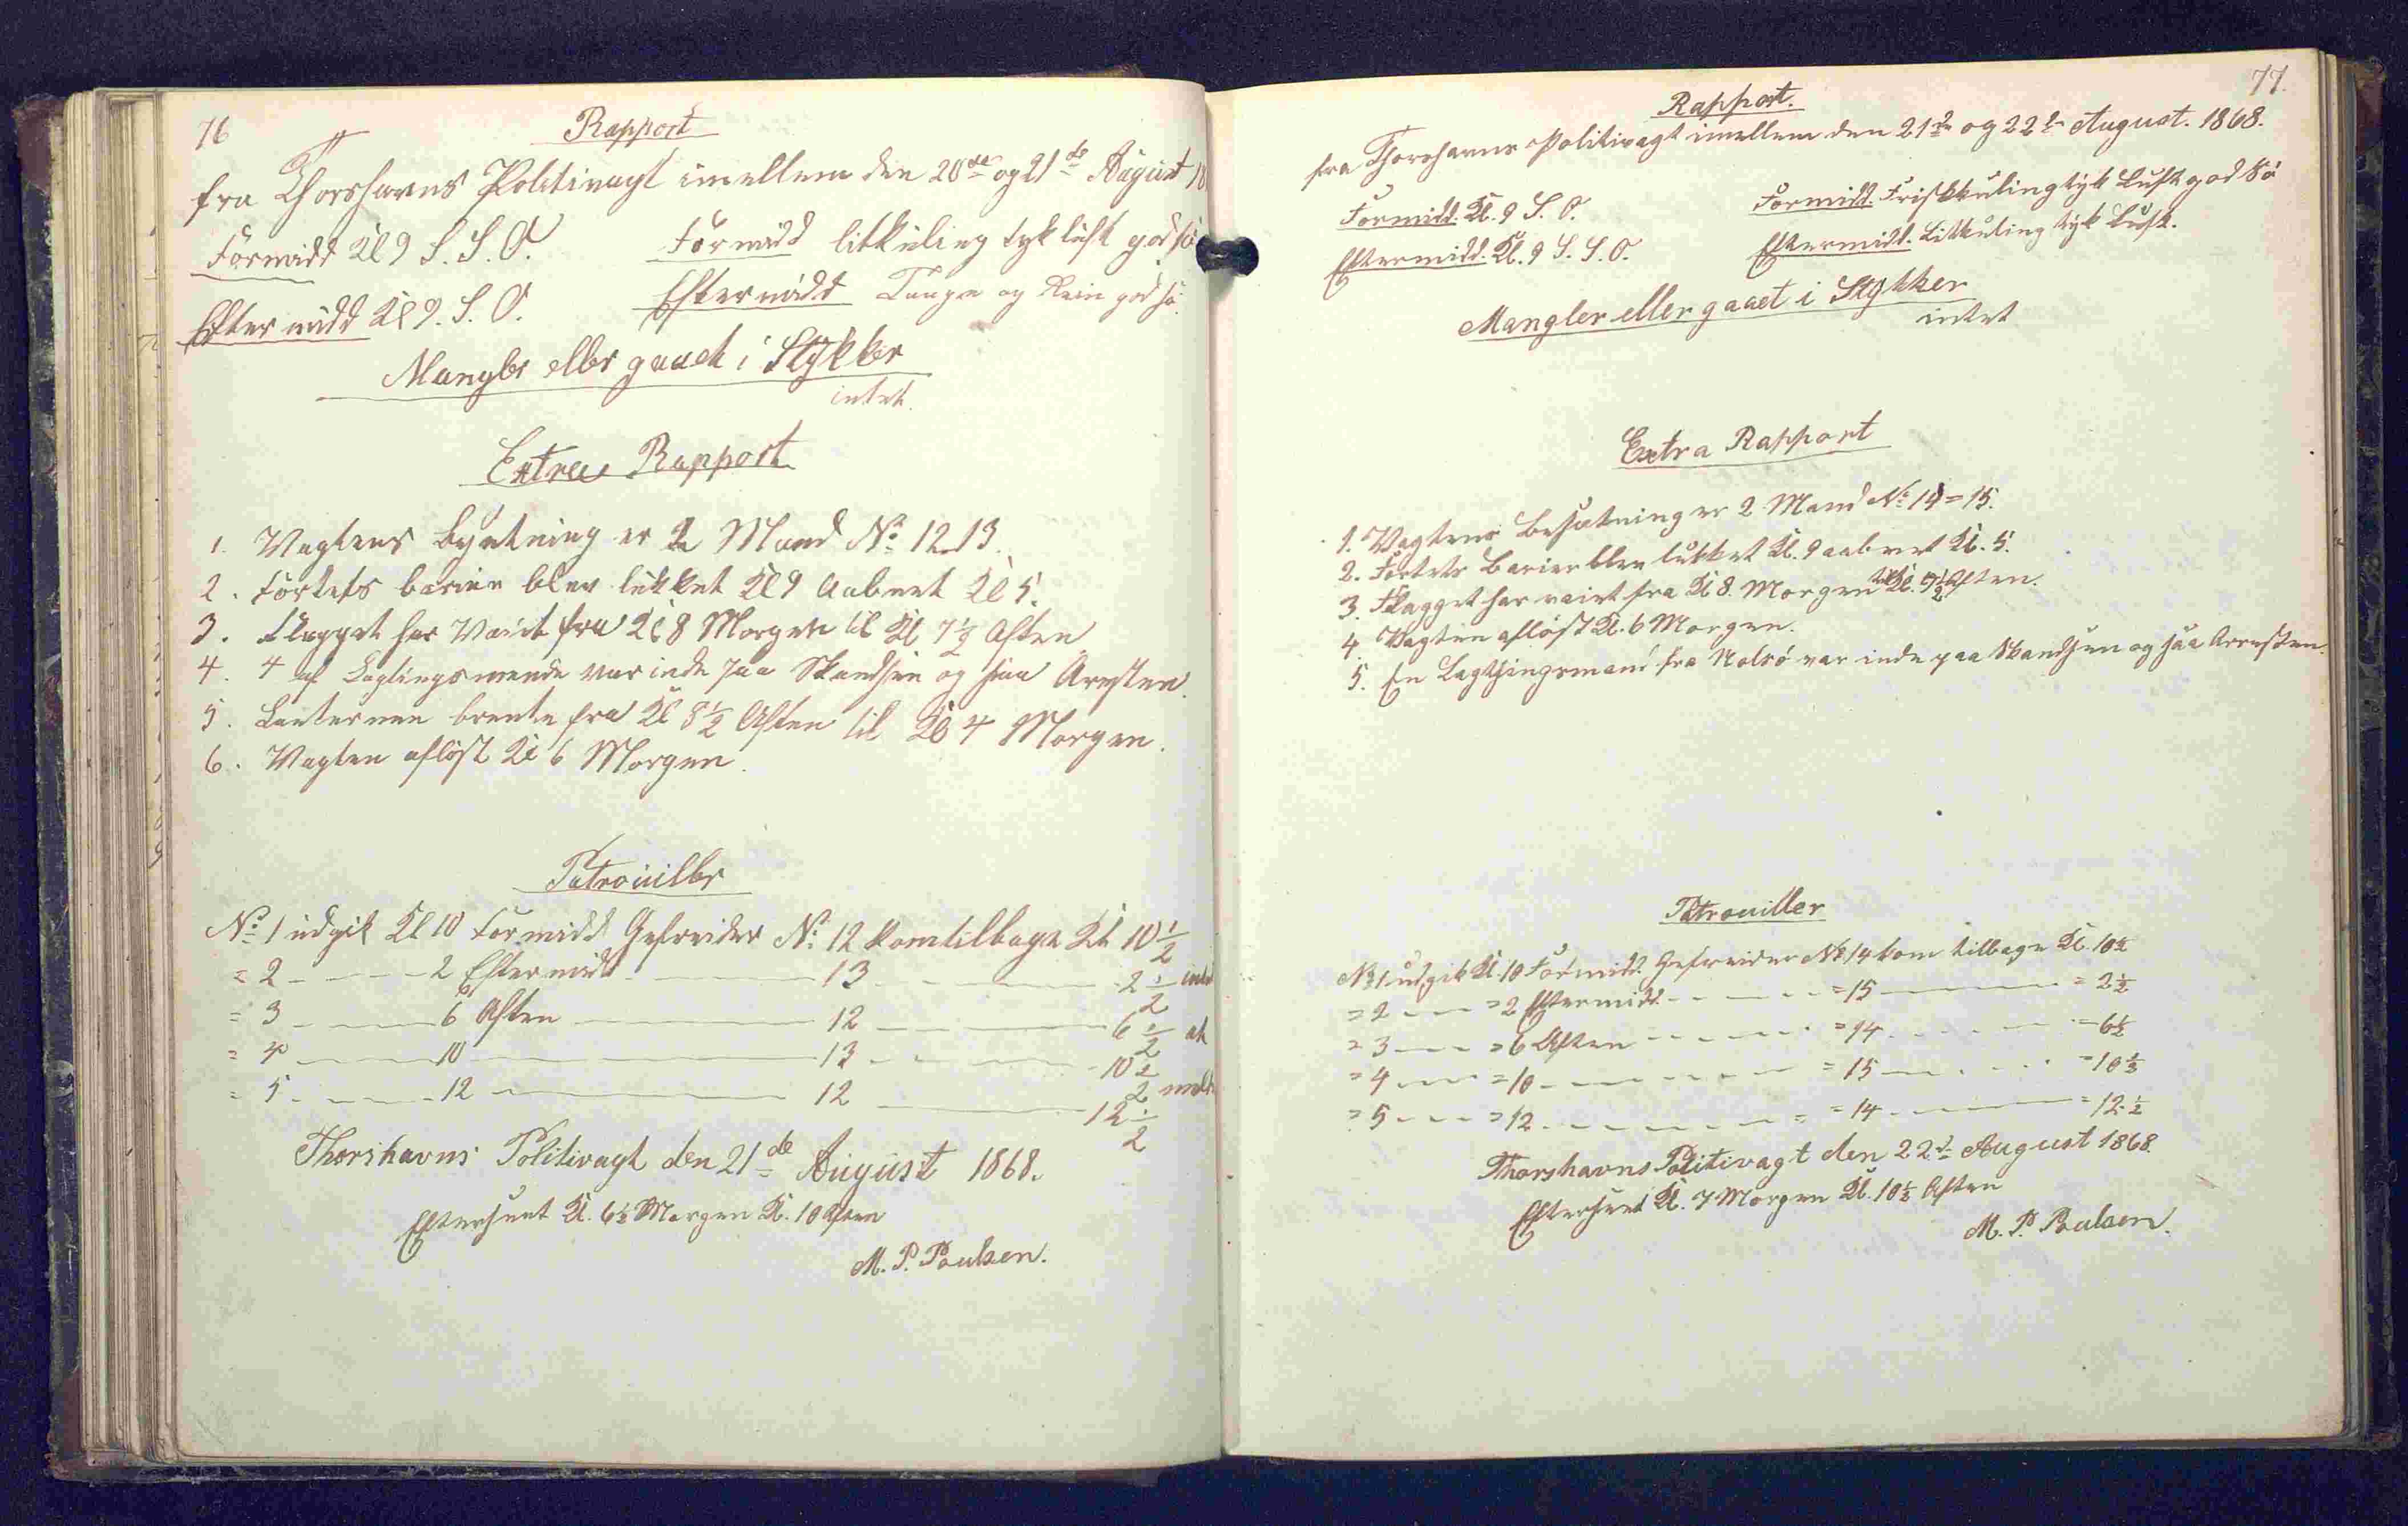 76
Rapport
fra Thorshavns Politivagt imellem den 20de og 21de August 18
Formidd Kl 9 S. S. O. Formidd litkuling tyk luft god sö
Eftermidd Kl 9. S. O. Eftermidd Taage og Rein god sö.
Mangler eller gaaet i Stykker
intet.
Extra Rapport
1. Vagtens besetning er 2 Mand No 12 13.
2. Fortets barier blev lukket Kl 9 Aabnet Kl 5.
3. Flagget har Vaiet fra Kl 8 Morgen til Kl 7½ Aften
4. 4 af Lagtingsmende var inde paa Skandsen og saa Aresten.
5. Lanternen brente fra Kl 8½ Aften til Kl 4 Morgen.
6. Vagten aflöst Kl 6 Morgen.
Patrouiller
No 1 udgik Kl 10 Formidd Gefreider No 12 kom tilbage Kl 10½
= 2 - - - 2 Eftermidd - - - 13 - - - 2½ intet
= 3 - - - 6 Aften - - - 12 - - - 6½ at
= 4 - - - 10 - - - 13 - - - 10½
= 5 - - - 12 - - - 12 - - - 12½ melde
Thorshavns Politivagt den 21de August 1868.
Efterseet Kl. 6½ Morgen Kl. 10 Aften
M. P. Poulsen.
77.
Rapport.
fra Thorshavns Politivagt imellem den 21de og 22de August. 1868.
Formidd. Kl. 9 S. O. Formidd. Friskkuling tyk Luft god Sö
Eftermidd. Kl. 9 S. S. O. Eftermidd. Litkuling tyk Luft.
Mangler eller gaaet i Stykker
intet
Extra Rapport
1. Vagtens Besætning er 2 Mand No 14 = 15.
2. Fortets Barier blev lukket Kl. 9 aabnet Kl. 5.
3. Flagget har vaiet fra Kl 8. Morgen til Kl. 7½ Aften.
4. Vagten aflöst Kl. 6 Morgen.
5. En Lagthingsmand fra Nolsö var inde paa Skandsen og saa Arresten.
Patrouiller
No 1 udgik Kl. 10 Formidd. Gefreider No 14 kom tilbage Kl. 10½
= 2 - - - = 2 Eftermidd. - - - = 15 - - - = 2½
= 3 - - - = 6 Aften - - - = 14 - - - = 6½
= 4 - - - = 10 - - - = 15 - - - = 10½
= 5 - - - = 12 - - - = 14 - - - = 12½
Thorshavns Politivagt den 22de August 1868.
Efterseet Kl. 7 Morgen Kl. 10½ Aften
M. P. Poulsen.